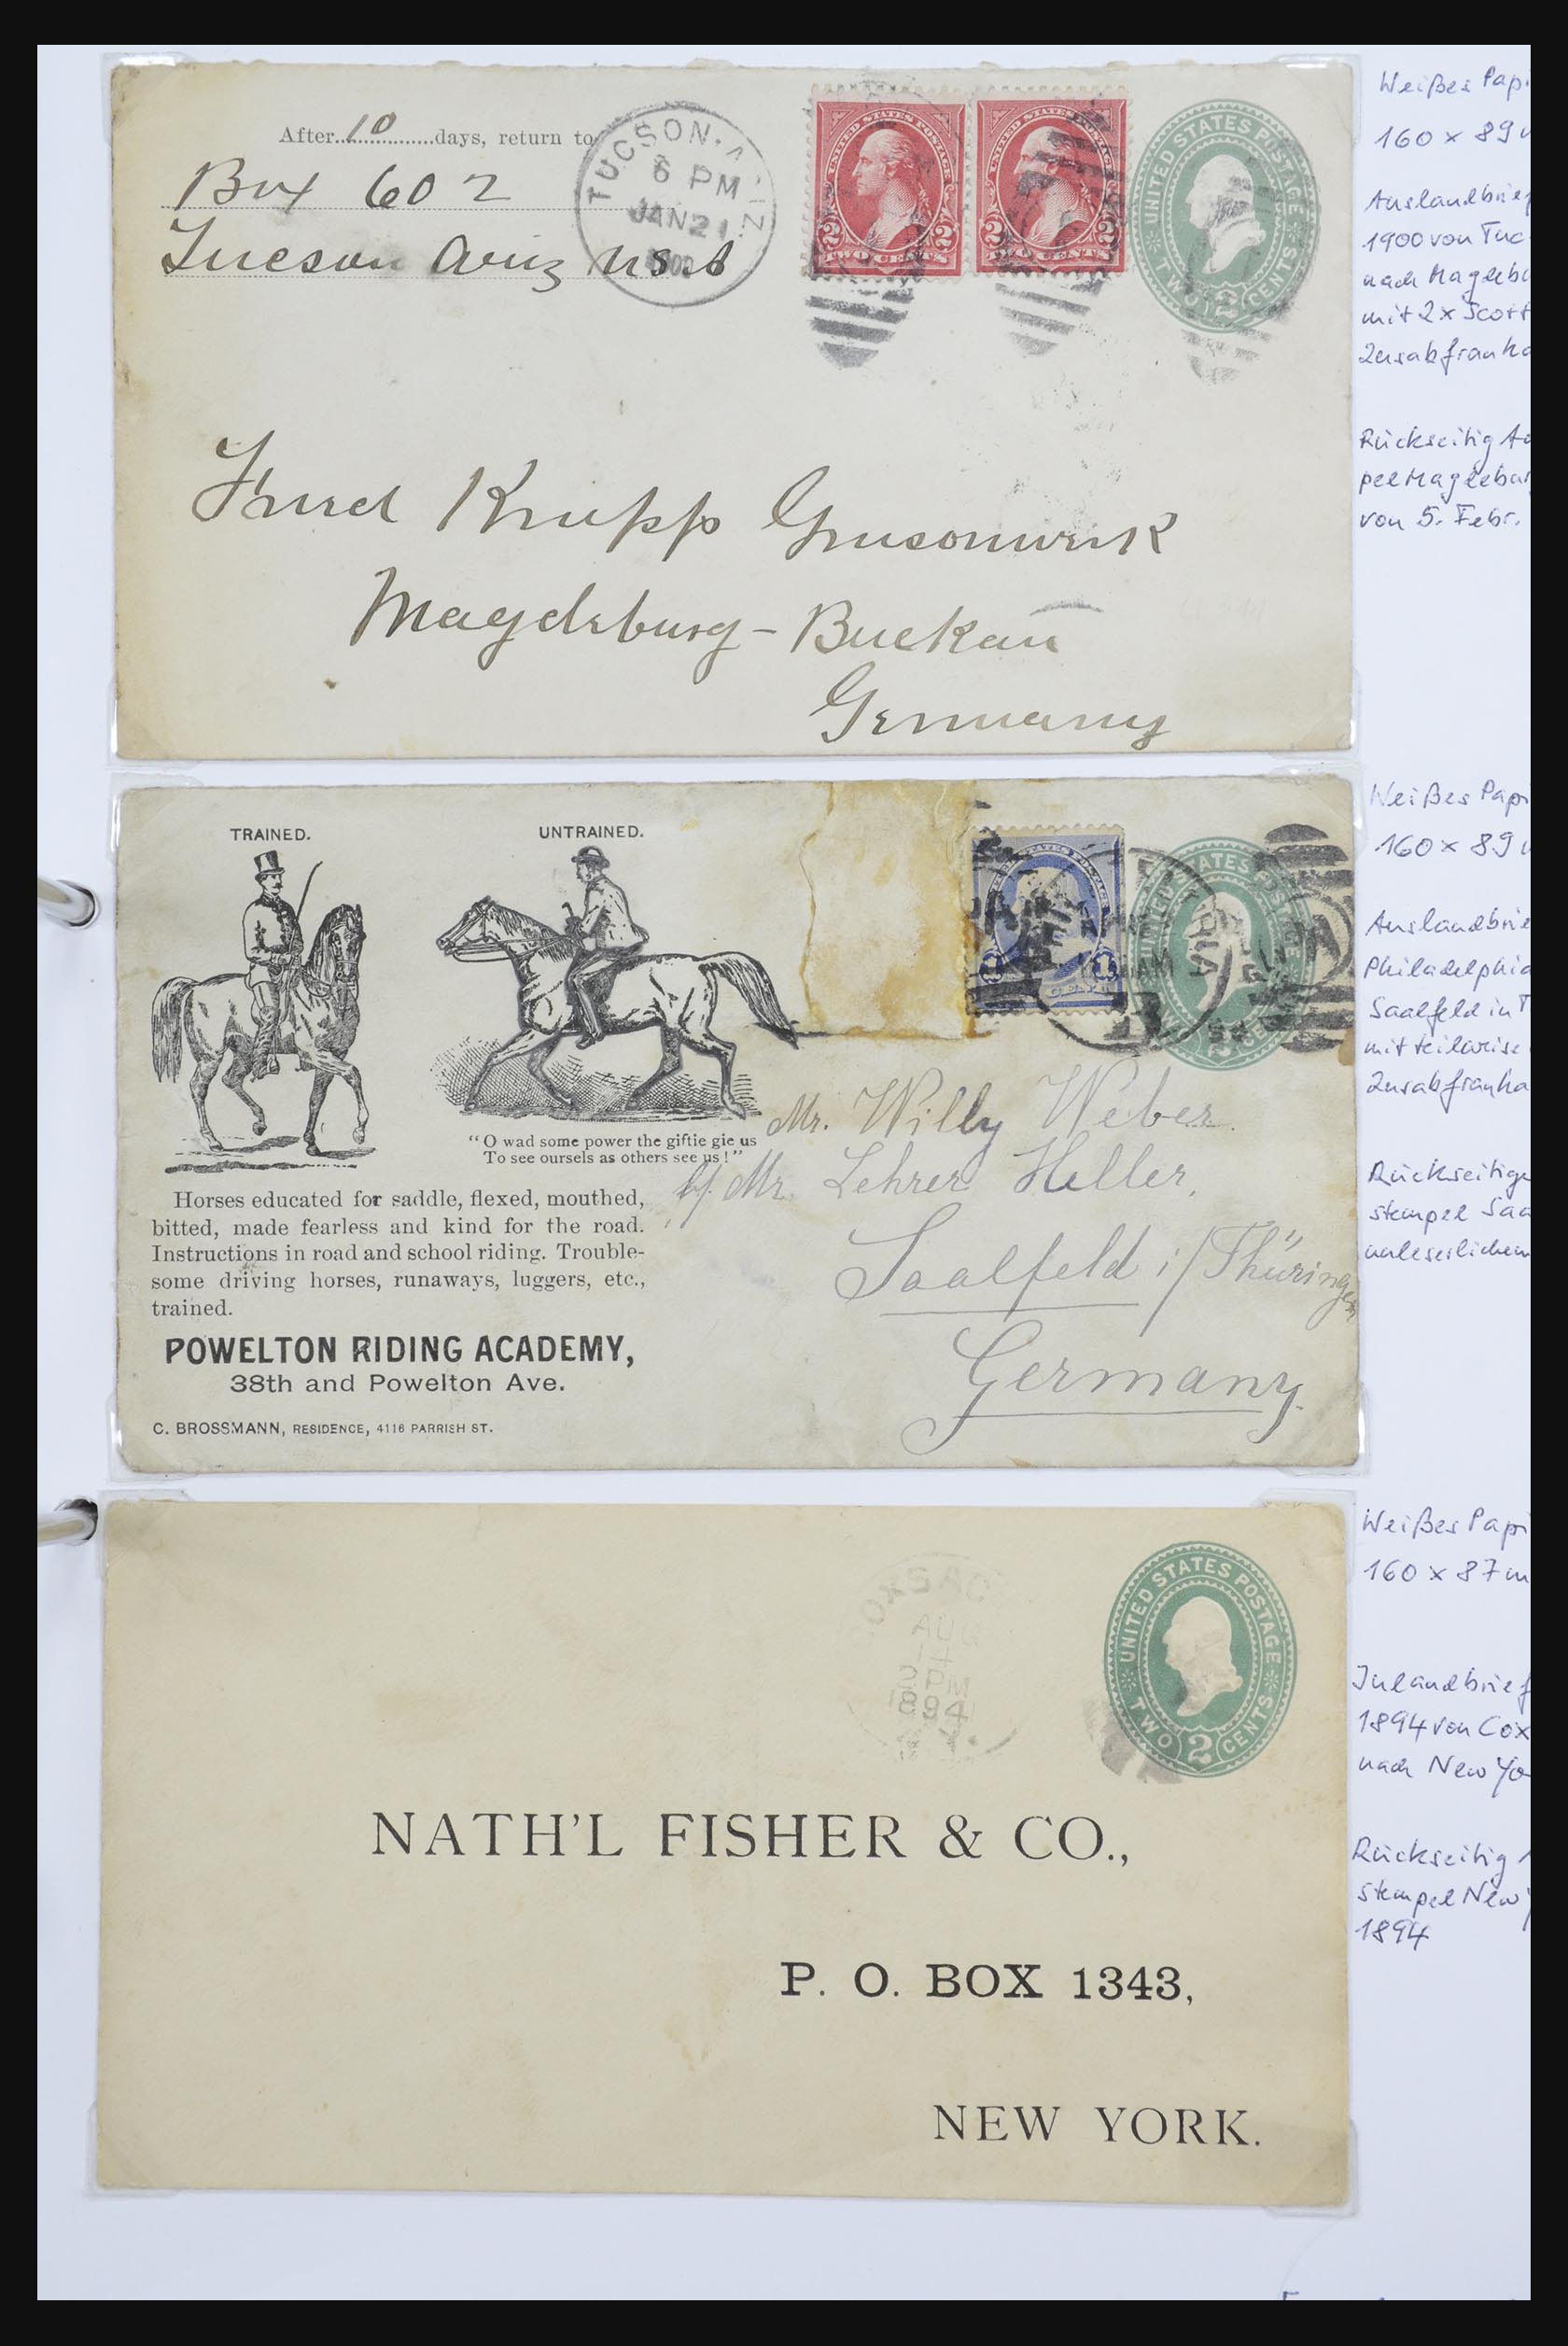 After 10 days, return to
Box 602
Tucson Ariz USA
TUCSON, ARIZ.
6 PM
JAN 21
UNITED STATES POSTAGE
2 TWO CENTS 2
UNITED STATES POSTAGE
2 TWO CENTS 2
UNITED STATES POSTAGE
TWO 2 CENTS
Fried Krupp Grusonwerk
Magdeburg - Buckau
Germany
Weißes Pap
160 x 89
Auslandbrief
1900 von Tuc
nach Magdebu
mit 2 x Scott
Zusatzfranka
Rückseitig An
pel Magdebur
von 5. Febr.
TRAINED.
UNTRAINED.
"O wad some power the giftie gie us
To see oursels as others see us!"
Horses educated for saddle, flexed, mouthed,
bitted, made fearless and kind for the road.
Instructions in road and school riding. Trouble-
some driving horses, runaways, luggers, etc.,
trained.
POWELTON RIDING ACADEMY,
38th and Powelton Ave.
C. BROSSMANN, RESIDENCE, 4116 PARRISH ST.
1 CENT 1
AM
UNITED STATES POSTAGE
TWO 2 CENTS
Mr. Willy Weber.
Mr. Lehrer Heller,
Saalfeld i/Thüringen
Germany.
Weißes Papi
160 x 89
Auslandbrie
Philadelphia
Saalfeld in T
mit teilweise
Zusatzfranka
Rückseitige
stempel Saa
unleserlichem
OXSAC
AUG
14
2 PM
1894
N.Y.
UNITED STATES POSTAGE
TWO 2 CENTS
NATH'L FISHER & CO.,
P. O. BOX 1343,
NEW YORK.
Weißes Papi
160 x 87 m
Inlandbrief
1894 von Cox
nach New Yo
Rückseitig
stempel New Y
1894